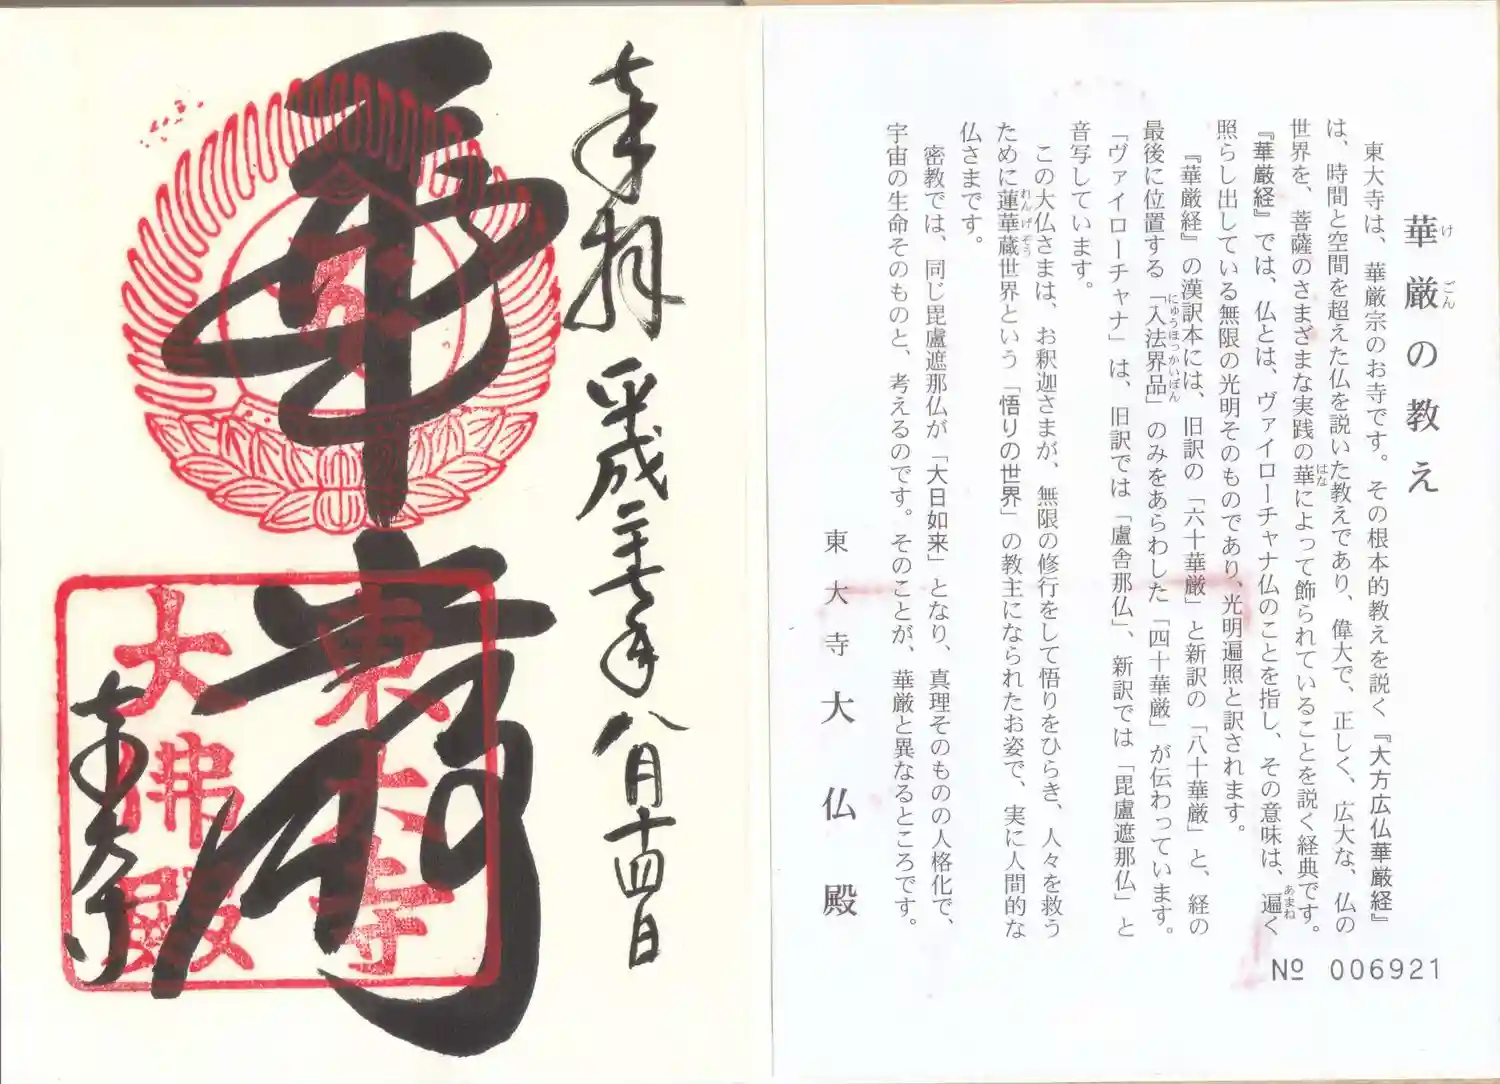 華厳の教え
東大寺は、華厳宗のお寺です。その根本的教えを説く『大方広仏華厳経』
は、時間と空間を超えた仏を説いた教えであり、偉大で、正しく、広大な、仏の
世界を、菩薩のさまざまな実践の華によって飾られていることを説く経典です。
『華厳経』では、仏とは、ヴァイローチャナ仏のことを指し、その意味は、遍く
照らし出している無限の光明そのものであり、光明遍照と訳されます。
『華厳経』の漢訳本には、旧訳の「六十華厳」と新訳の「八十華厳」と、経の
最後に位置する「入法界品」のみをあらわした「四十華厳」が伝わっています。
「ヴァイローチャナ」は、旧訳では「盧舎那仏」、新訳では「毘盧遮那仏」と
音写しています。
この大仏さまは、お釈迦さまが、無限の修行をして悟りをひらき、人々を救う
ために蓮華蔵世界という「悟りの世界」の教主になられたお姿で、実に人間的な
仏さまです。
密教では、同じ毘盧遮那仏が「大日如来」となり、真理そのものの人格化で、
宇宙の生命そのものと、考えるのです。そのことが、華厳と異なるところです。
東大寺大仏殿
№ 006921
奉拝
平成二十七年八月十四日
華厳
東大寺
東大寺
大佛殿